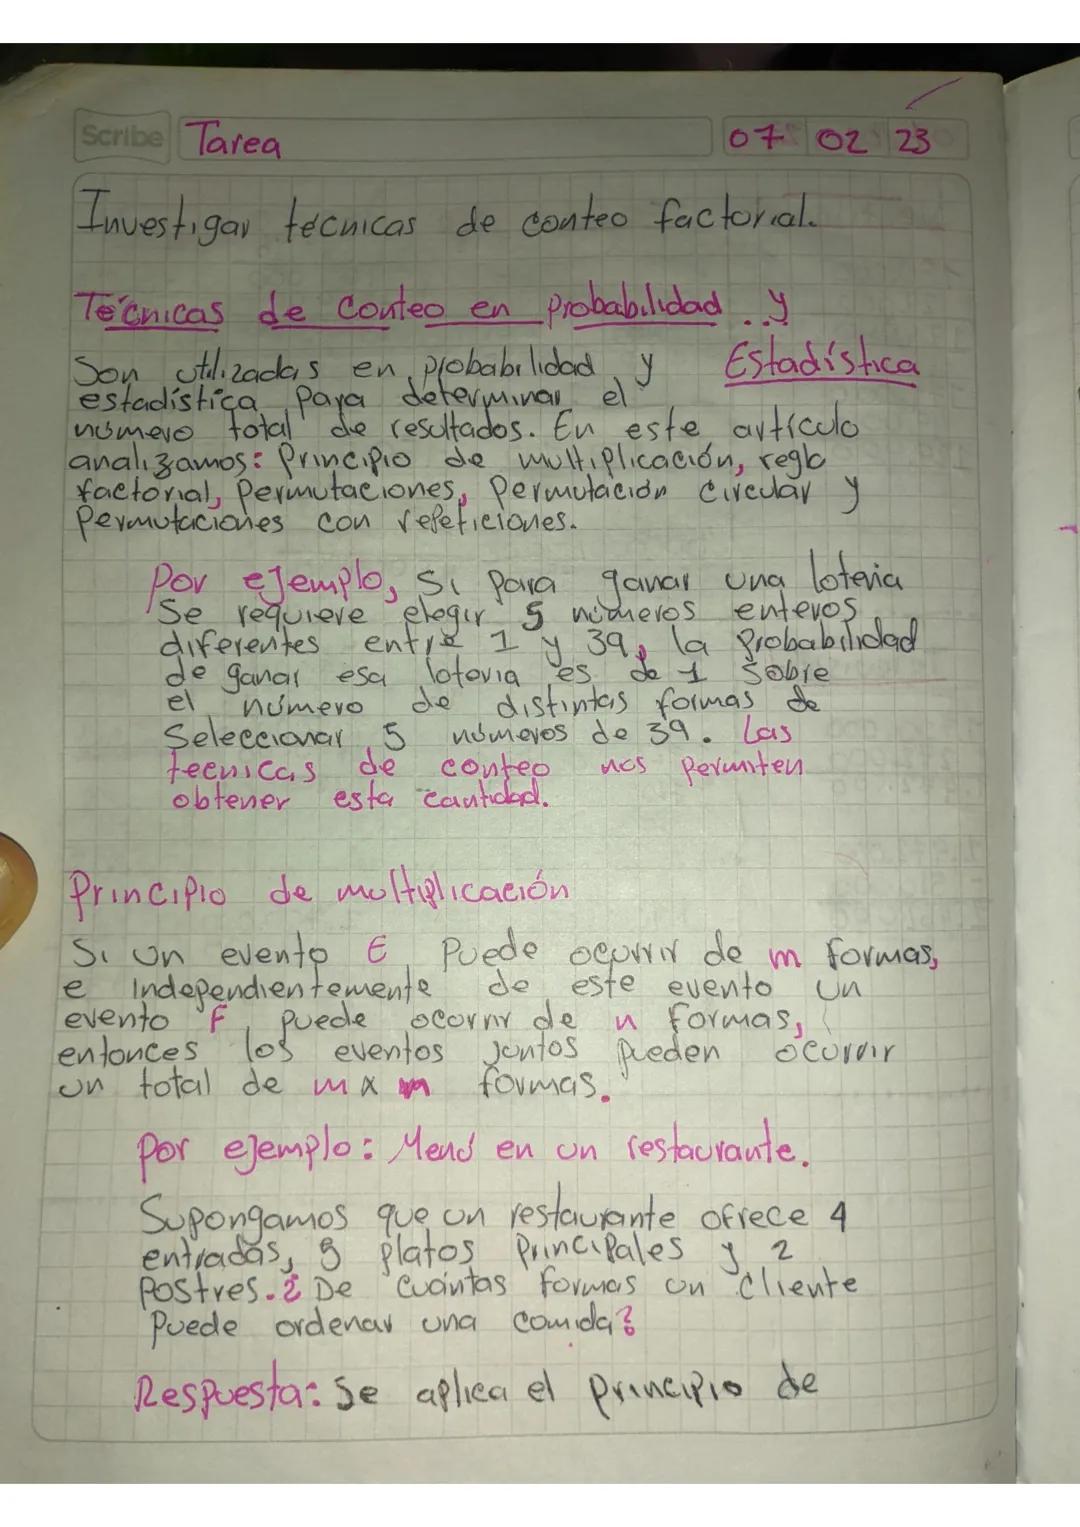 Scribe Tarea 07 02 23
Investigar técnicas de conteo factorial.
Técnicas de Conteo en probabilidad y
Estadística
Son utilizadas en probabilidad y
estadística para determinar el
número total de resultados. En este artículo
analizamos: Principio de multiplicación, regla
factorial, Permutaciones, Permutación Circular y
Permutaciones con repeticiones.
Por ejemplo, Si para ganar una loteria
Se requiere elegir 5 números enteros
diferentes entre 1 y 39, la Probabilidad
de ganar esa loteria es de 1 Sobre
el número de distintas formas de
Seleccionar 5 números de 39. Las
tecnicas de conteo nos permiten
obtener esta cantidad.
Principio de multiplicación
Si un evento E Puede ocurrir de m formas,
e Independientemente de este evento un
evento F puede ocorrir de n formas,
entonces los eventos juntos pueden ocurrir
un total de m x m formas.
Por ejemplo: Menú en un restaurante.
Supongamos que un restaurante ofrece 4
entradas, 5 platos Principales y 2
Postres. ¿De cuántas formas un cliente
Puede ordenar una comida?
Respuesta: Se aplica el Principio de